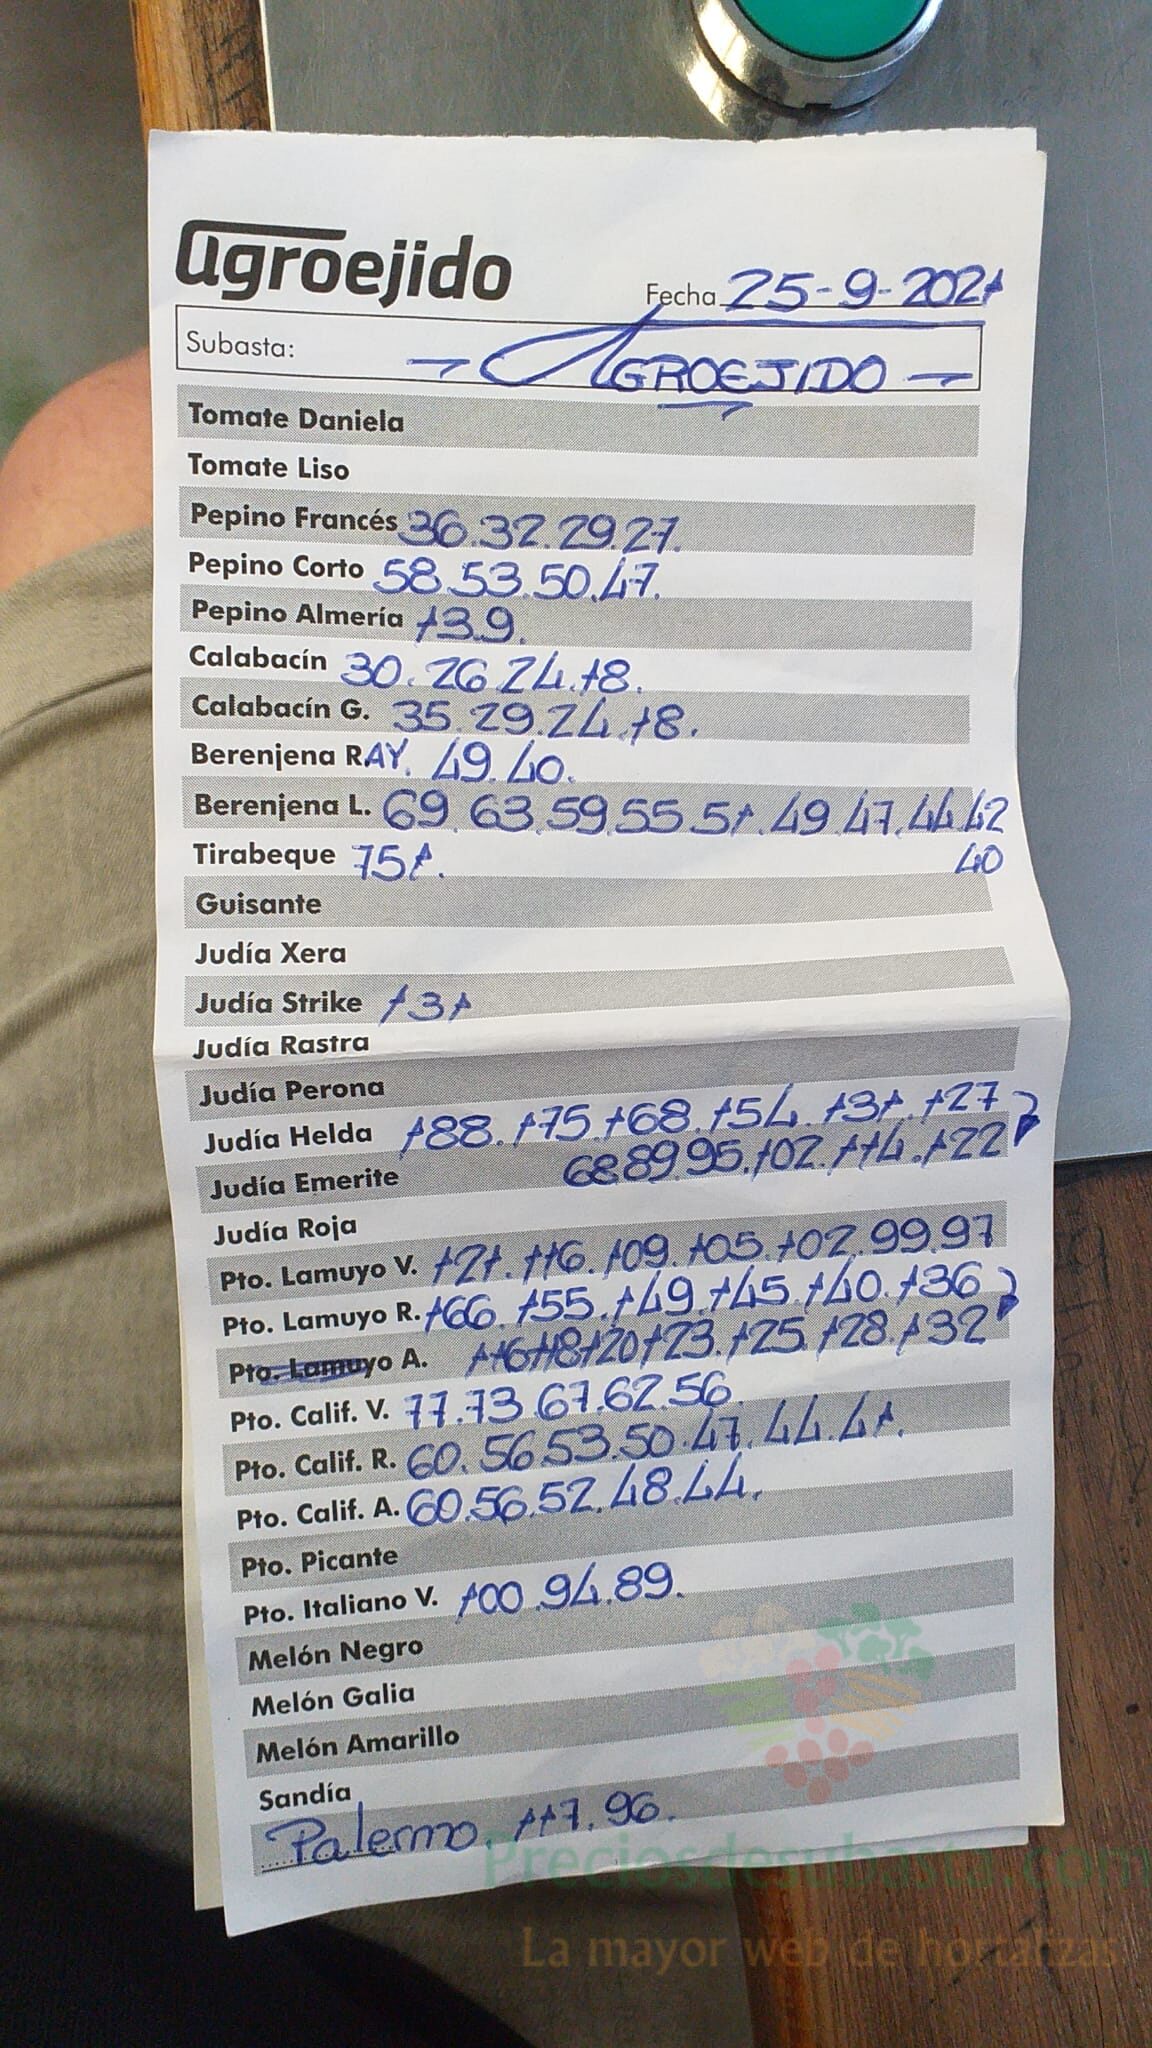 agroejido
Fecha 25-9-2021
Subasta: - AGROEJIDO -
Tomate Daniela
Tomate Liso
Pepino Francés 36.32.29.27.
Pepino Corto 58.53.50.47.
Pepino Almería 13.9.
Calabacín 30.26.24.18.
Calabacín G. 35.29.24.18.
Berenjena RAY. 49.40.
Berenjena L. 69.63.59.55.51.49.47.44.42
Tirabeque 751. 40
Guisante
Judía Xera
Judía Strike 131
Judía Rastra
Judía Perona
Judía Helda 188.175.168.154.131.127
Judía Emerite 68.89.95.102.114.122
Judía Roja
Pto. Lamuyo V. 121.116.109.105.102.99.97
Pto. Lamuyo R. 166.155.149.145.140.136
Pto. Lamuyo A. 116.118.120.123.125.128.132
Pto. Calif. V. 77.73.67.62.56.
Pto. Calif. R. 60.56.53.50.47.44.41.
Pto. Calif. A. 60.56.52.48.44.
Pto. Picante
Pto. Italiano V. 100.94.89.
Melón Negro
Melón Galia
Melón Amarillo
Sandía
Palermo. 117.96.
Preciosdesubasta.com
La mayor web de hortalizas